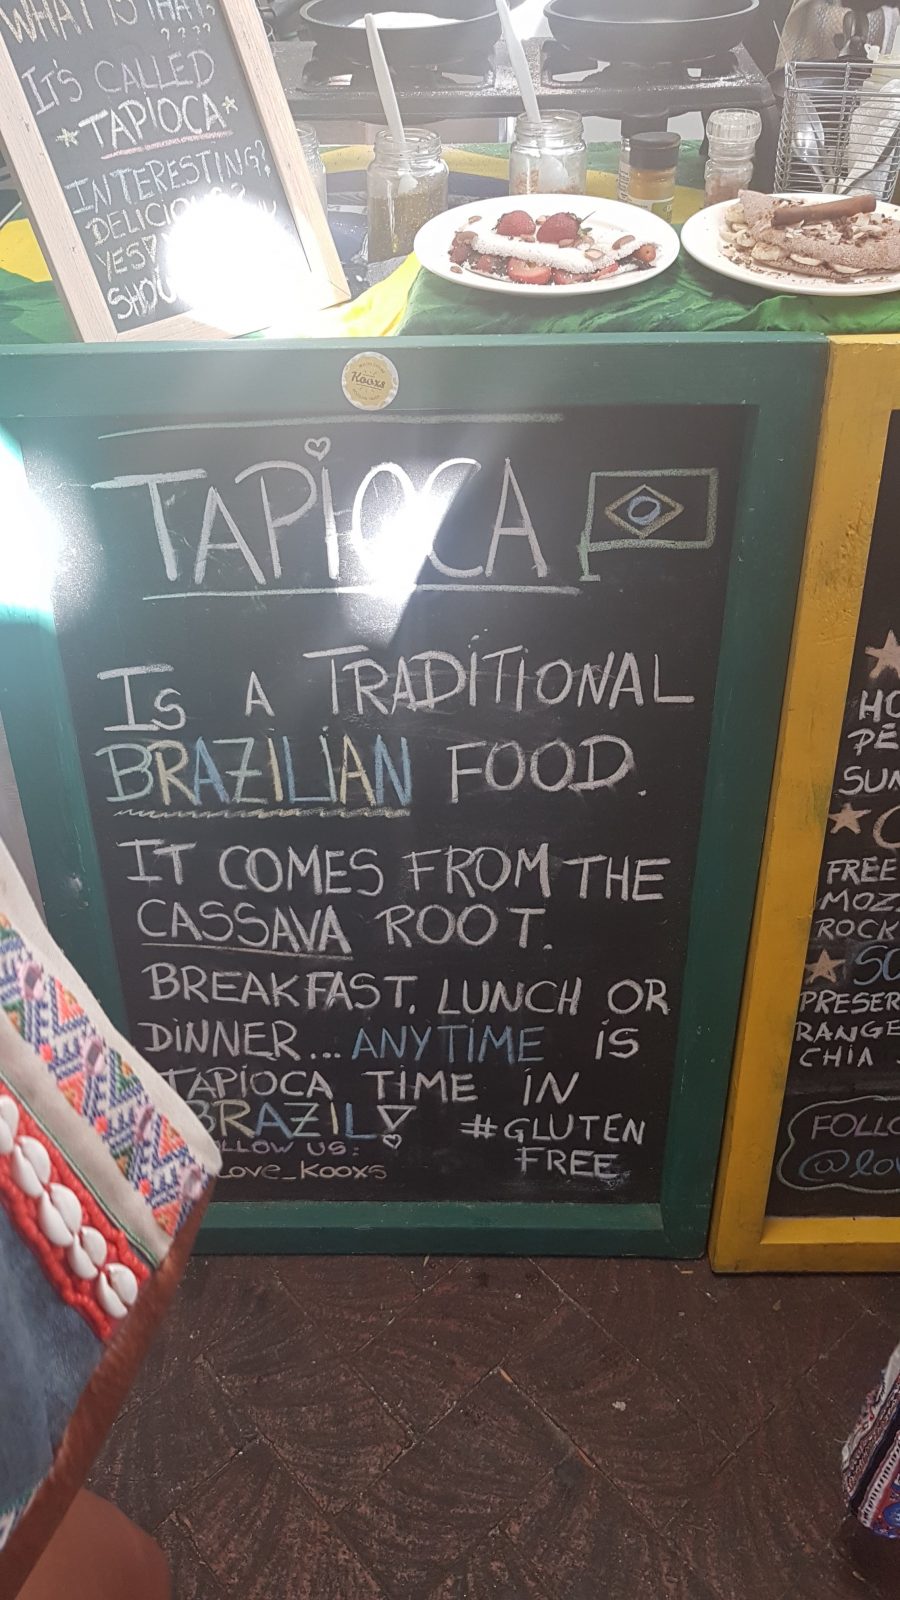 WHAT IS THAT?
? ? ? ?
IT'S CALLED
TAPIOCA
INTERESTING?
DELICIOUS?
YES?
Kooxs
TAPIOCA
IS A TRADITIONAL
BRAZILIAN FOOD.
IT COMES FROM THE
CASSAVA ROOT.
BREAKFAST, LUNCH OR
DINNER... ANYTIME IS
TAPIOCA TIME IN
BRAZIL!
#GLUTEN
FREE
LLOW US:
LOVE_KOOXS
HO
PE
SUN
C
FREE
MOZZ
ROCK
SO
PRESER
RANGE
CHIA
FOLLO
@lov